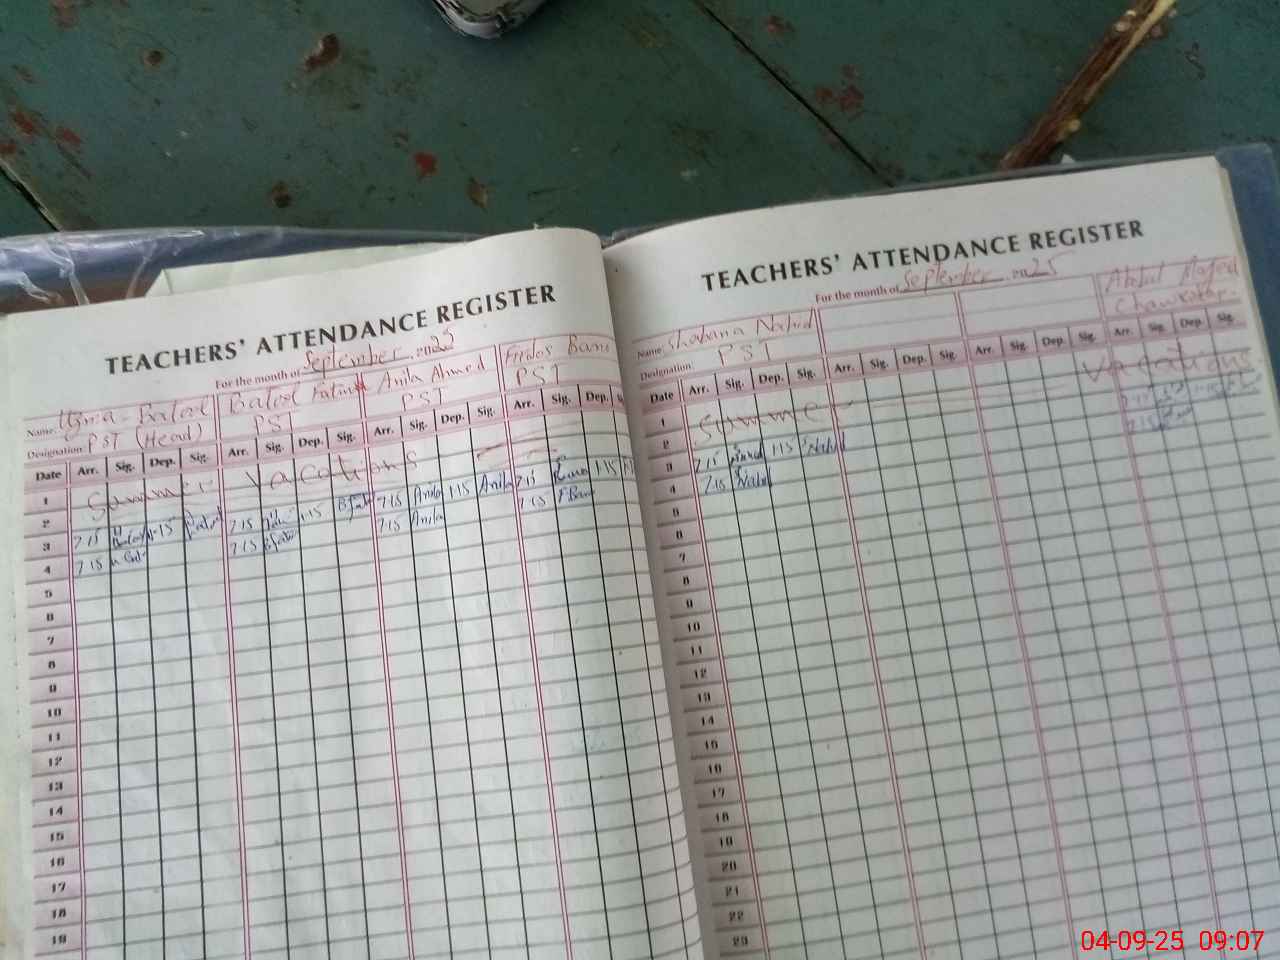 TEACHERS' ATTENDANCE REGISTER
For the month of September 2025
Name: Uzma Batool Batool Fatima Anila Ahmed Firdos Bano
Designation: PST (Head) PST PST PST
Date Arr. Sig. Dep. Sig. Arr. Sig. Dep. Sig. Arr. Sig. Dep. Sig. Arr. Sig. Dep.
1 Summer Vacations
2
3 7:15 1:15 Batool 7:15 1:15 BFati 7:15 Anila 1:15 Anila 7:15 Bano 1:15
4 7:15 7:15 BFati 7:15 Anila 7:15 FBano
5
6
7
8
9
10
11
12
13
14
15
16
17
18
19
TEACHERS' ATTENDANCE REGISTER
For the month of September 2025
Name: Shabana Nahid Abdul Majeed
Designation: PST Chawkidar
Date Arr. Sig. Dep. Sig. Arr. Sig. Dep. Sig. Arr. Sig. Dep. Sig. Arr. Sig. Dep. Sig.
1 Summer Vacations
2
3 7:15 Nahid 1:15 Nahid 7:15 1:15
4 7:15 Nahid 7:15
5
6
7
8
9
10
11
12
13
14
15
16
17
18
19
20
21
22
23
04-09-25 09:07